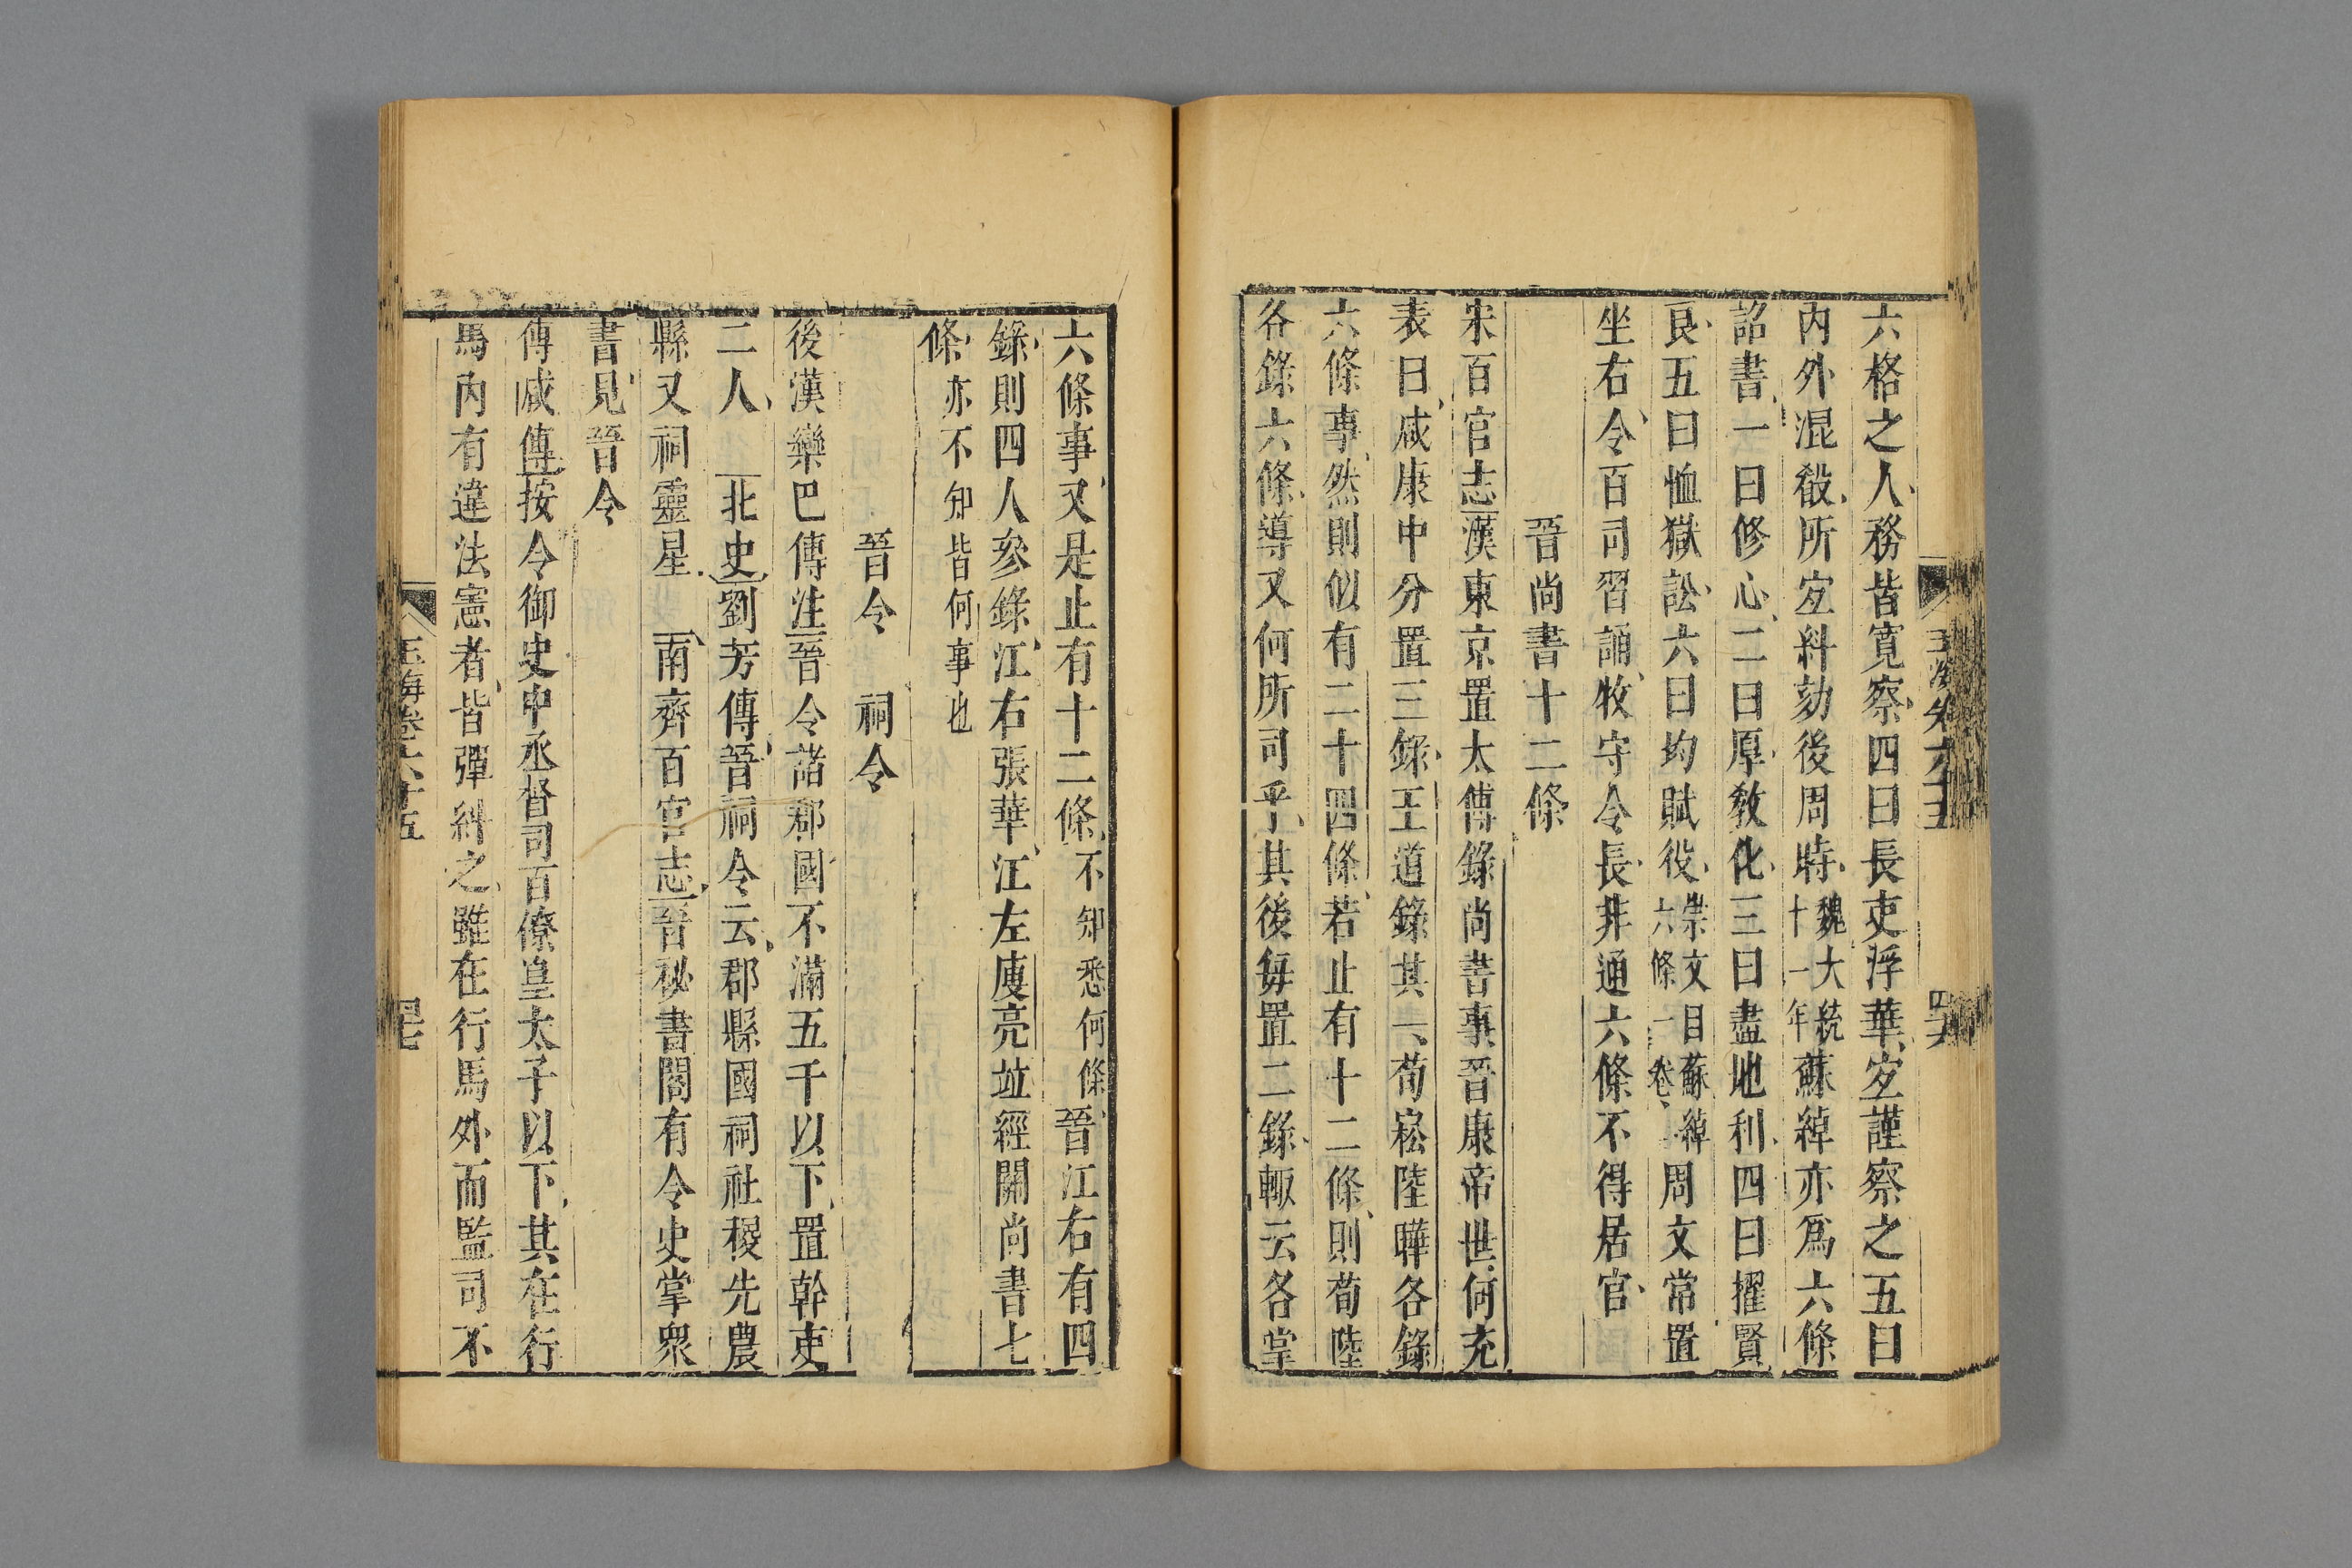 六格之人務皆寛察四曰長吏浮華宐謹察之五曰
內外混殽所宐糾劾後周時魏大統十一年蘇綽亦爲六條
詔書一曰修心二曰厚敎化三曰盡地利四曰擢賢
良五曰恤獄訟六曰均賦役崇文目蘇綽六條一卷周文常置
坐右令百司習誦牧守令長非通六條不得居官
晉尚書十二條
宋百官志漢東京置太傅錄尚書事晉康帝世何充
表曰咸康中分置三錄王導錄其一荀崧陸曄各錄
六條事然則似有二十四條若止有十二條則荀陸
各錄六條導又何所司乎其後每置二錄輙云各掌
六條事又是止有十二條不知悉何條晉江右有四
錄則四人參錄江右張華江左庾亮竝經關尚書七
條亦不知皆何事也
晉令　祠令
後漢欒巴傳注晉令諸郡國不滿五千以下置幹吏
二人　北史劉芳傳晉祠令云郡縣國祠社稷先農
縣又祠靈星　南齊百官志晉祕書閣有令史掌衆
書見晉令
傅咸傳按令御史中丞督司百僚皇太子以下其在行
馬內有違法憲者皆彈糾之雖在行馬外而監司不
玉海卷六十五